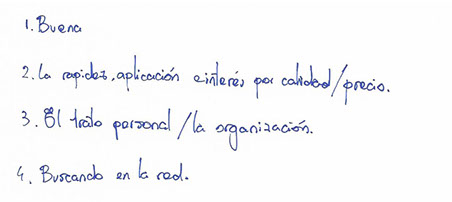 1. Buena
2. La rapidez, aplicación e interés por calidad/precio.
3. El trato personal/la organización.
4. Buscando en la red.